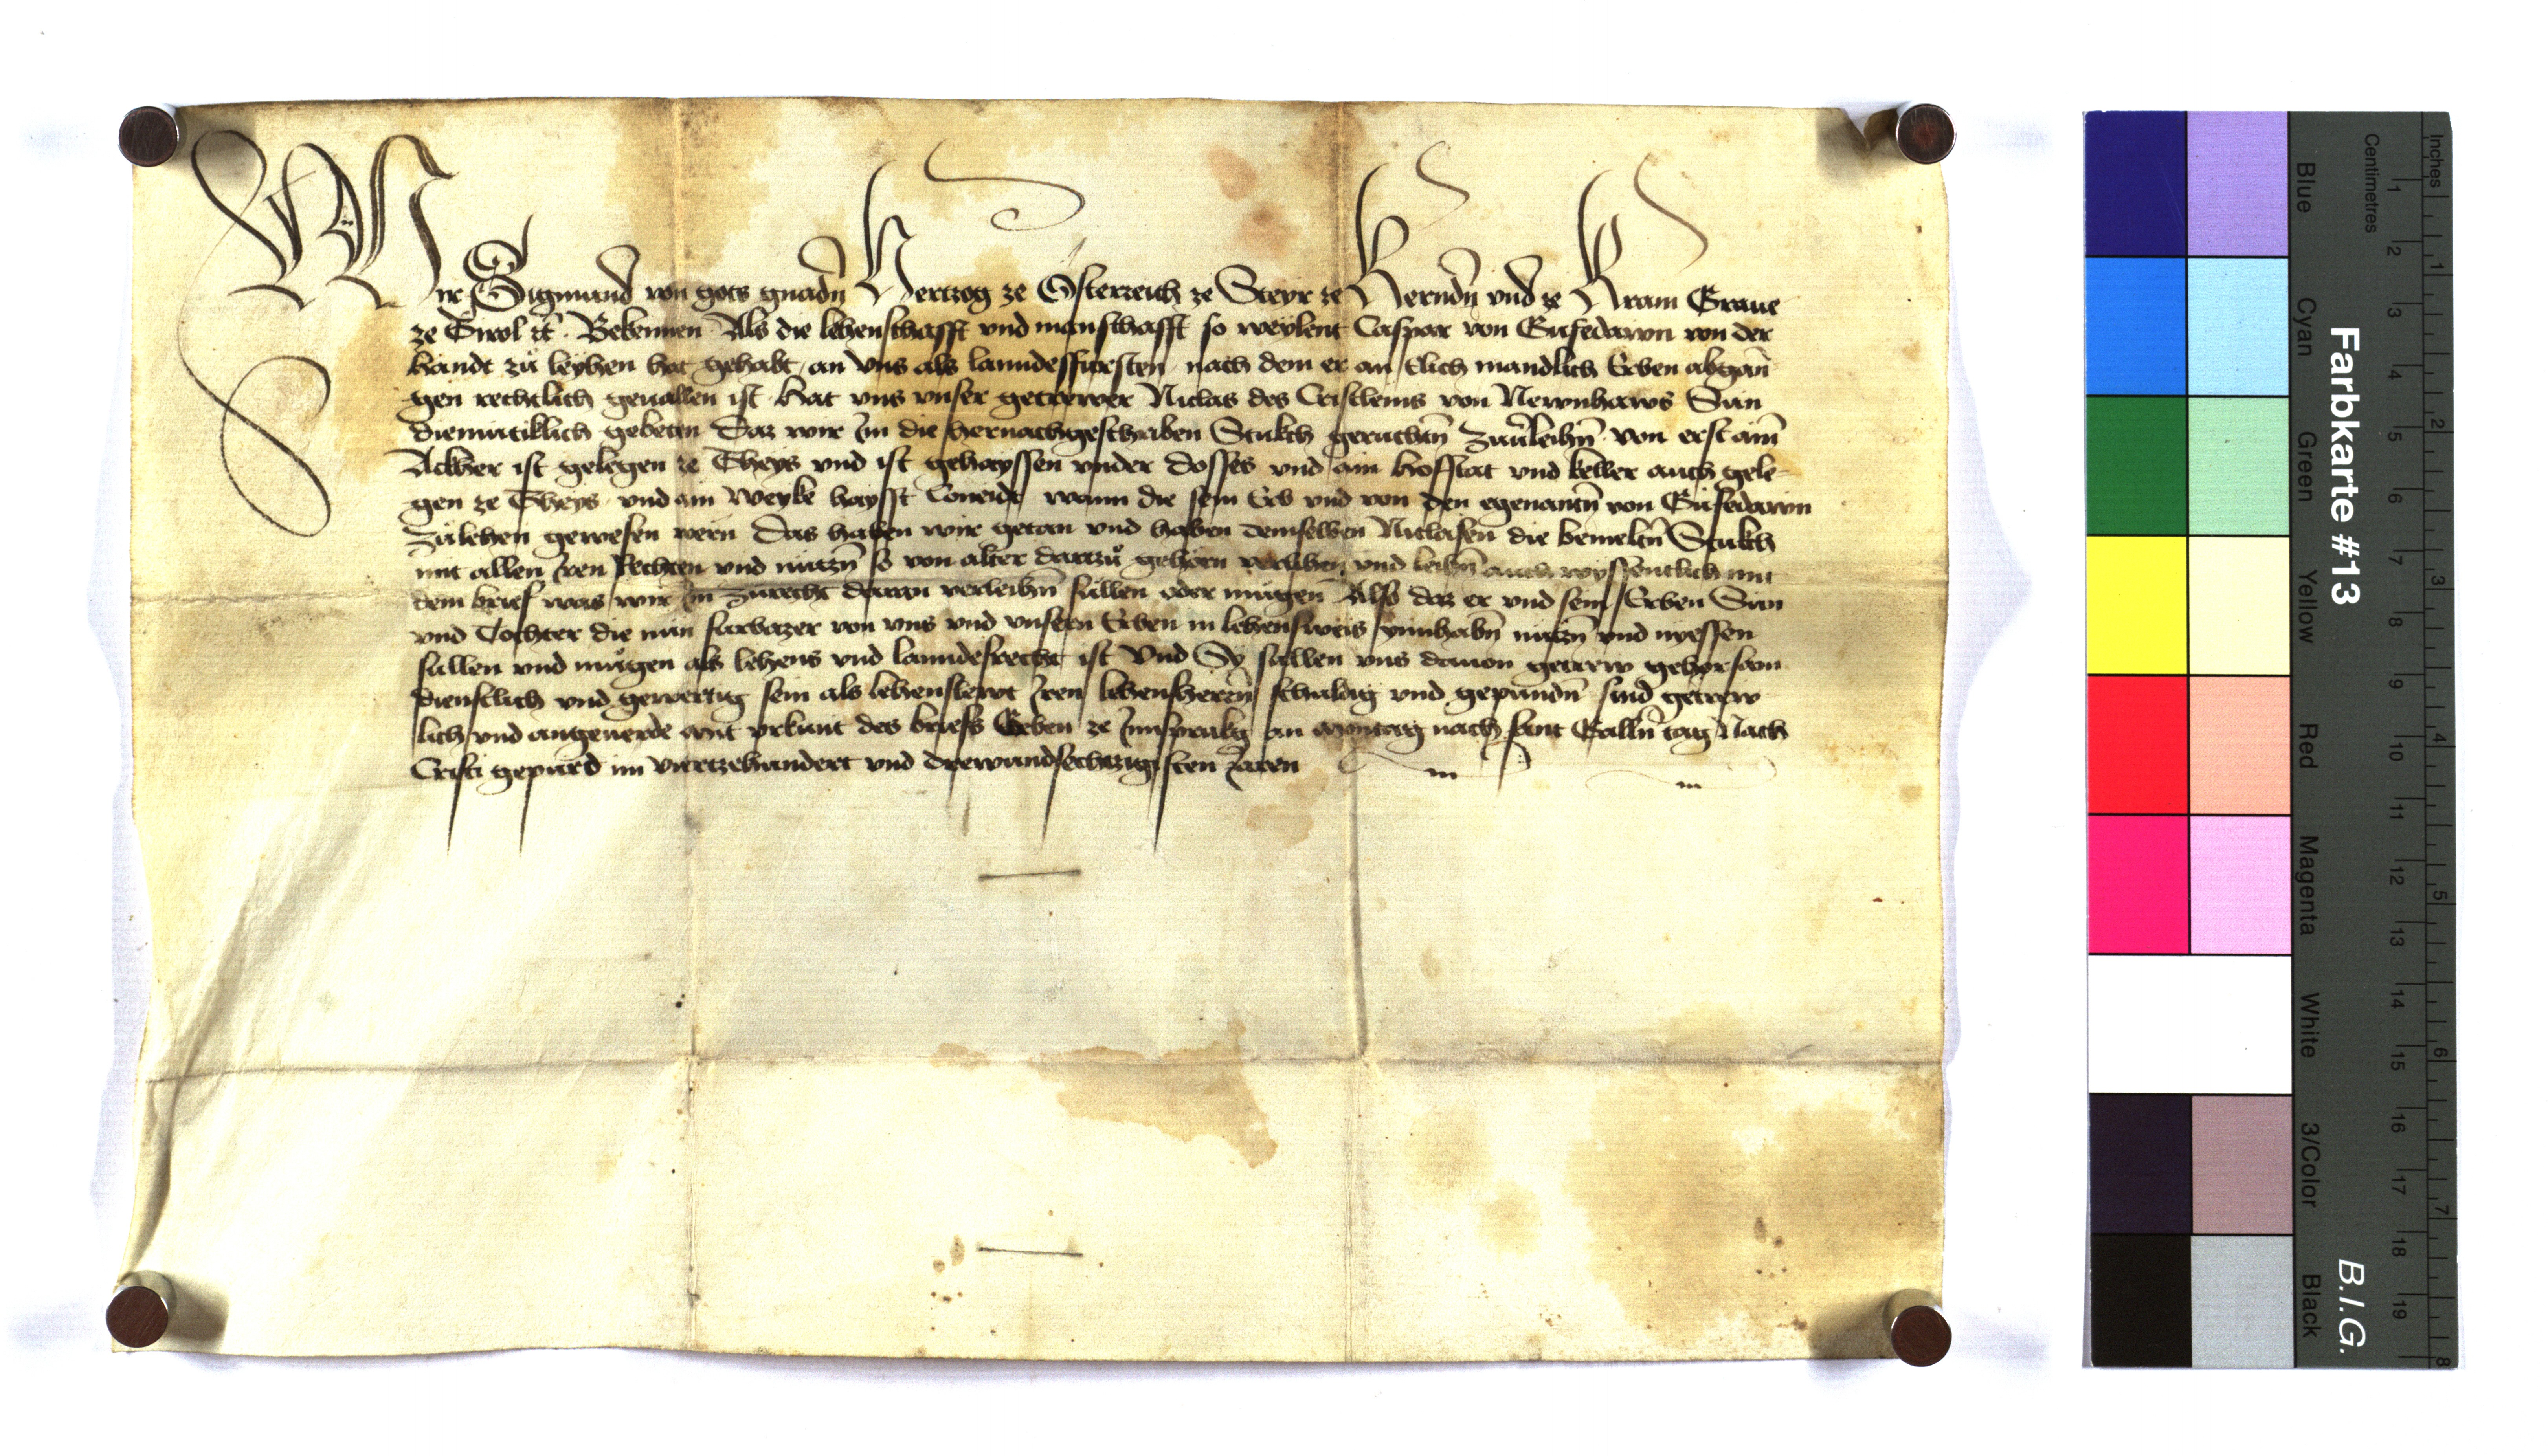 Wir Sigmund von gots gnadn̄ Hertzog ze Österreich ze Steyr ze Kerndn̄ vnd ze Krain Graue
ze Tirol ꝛc̄. Bekennen Als die lehenschafft vnd manschafft so weylent Caspar von Gufedawn von der
handt zů leyhen hat gehabt an vns als lanndesfürsten nach dem er an Elich mandlich Erben abgan̄
gen rechtlich geuallen ist Hat vns vnser getrewer Niclas des Cristleins von Newnhaws Sun
diemütiklich gebeten Daz wir Im die hernachgeschriben Stukch geruchtn̄ Zuuerleihn̄ von erst ain̄
Akher ist gelegen ze Theys vnd ist gehayssen vnder dosses vnd ain hofstat vnd keller auch gele-
gen ze Theys vnd ain Weyke haysst wann die sein Erb vnd von den egenantn̄ von Gufedawn
Zulehen gewesen wern Das haben wir getan vnd haben demselben Niclasen die bemeltn̄ Stukch
mit allen Iren Rechten vnd nützn̄ so von alter dartzů gehörn verlihen vnd leihn̄ auch wyssentlich mit
dem brief was wir Im Zurecht daran verleihn̄ sullen oder mügen Also daz er vnd sein Erben Sün
vnd Tochter die nün fürbazer von vns vnd vnsern Erben in lehensweis ynnhabn̄ nützn̄ vnd nyessen
sullen vnd mügen als lehens vnd lanndesrecht ist Vnd Sy sullen vns dauon getrew gehorsam
dienstlich vnd gewertig sein als lehenslewt Iren lehensherrn̄ schuldig vnd gepundn̄ sind getrew
lich vnd angeuerde mit vrkunt des briefs Geben ze Innsprukg an Montag nach sant Galln̄ tag Nach
Cristi gepurd im viertzehundert vnd drewundsechtzigisten Jaren
Farbkarte #13
B.I.G.
Inches 1 2 3 4 5 6 7 8
Centimetres 1 2 3 4 5 6 7 8 9 10 11 12 13 14 15 16 17 18 19
Blue Cyan Green Yellow Red Magenta White 3/Color Black